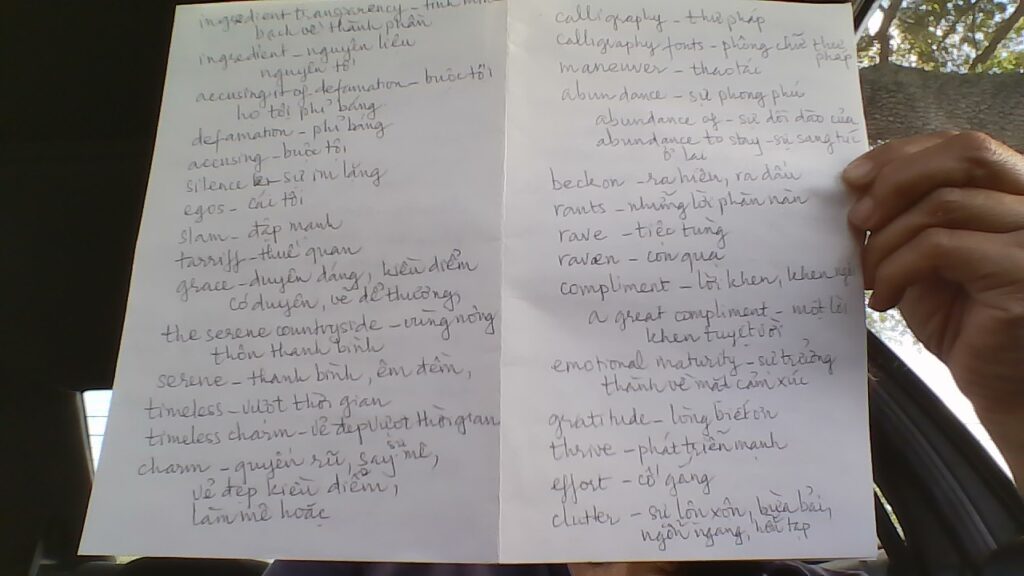 ingredient transparency - tính minh
bạch về thành phần
ingredient - nguyên liệu
nguyên tố
accusing it of defamation - buộc tội
họ tội phỉ báng
defamation - phỉ báng
accusing - buộc tội
silence - sự im lặng
egos - cái tôi
slam - đập mạnh
tarriff - thuế quan
grace - duyên dáng, kiều diễm
có duyên, vẻ dễ thương,
the serene countryside - vùng nông
thôn thanh bình
serene - thanh bình, êm đềm,
timeless - vượt thời gian
timeless charm - vẻ đẹp vượt thời gian
charm - quyến rũ, say sự mê,
vẻ đẹp kiều diễm,
làm mê hoặc
calligraphy - thư pháp
calligraphy fonts - phông chữ thư
pháp
maneuver - thao tác
abundance - sự phong phú
abundance of - sự dồi dào của
abundance to stay - sự sang trọng
ở lại
beckon - ra hiệu, ra dấu
rants - những lời phàn nàn
rave - tiệc tùng
raven - con quạ
compliment - lời khen, khen ngợi
a great compliment - một lời
khen tuyệt vời
emotional maturity - sự trưởng
thành về mặt cảm xúc
gratitude - lòng biết ơn
thrive - phát triển mạnh
effort - cố gắng
clutter - sự lộn xộn, bừa bãi,
ngổn ngang, hỗn tạp